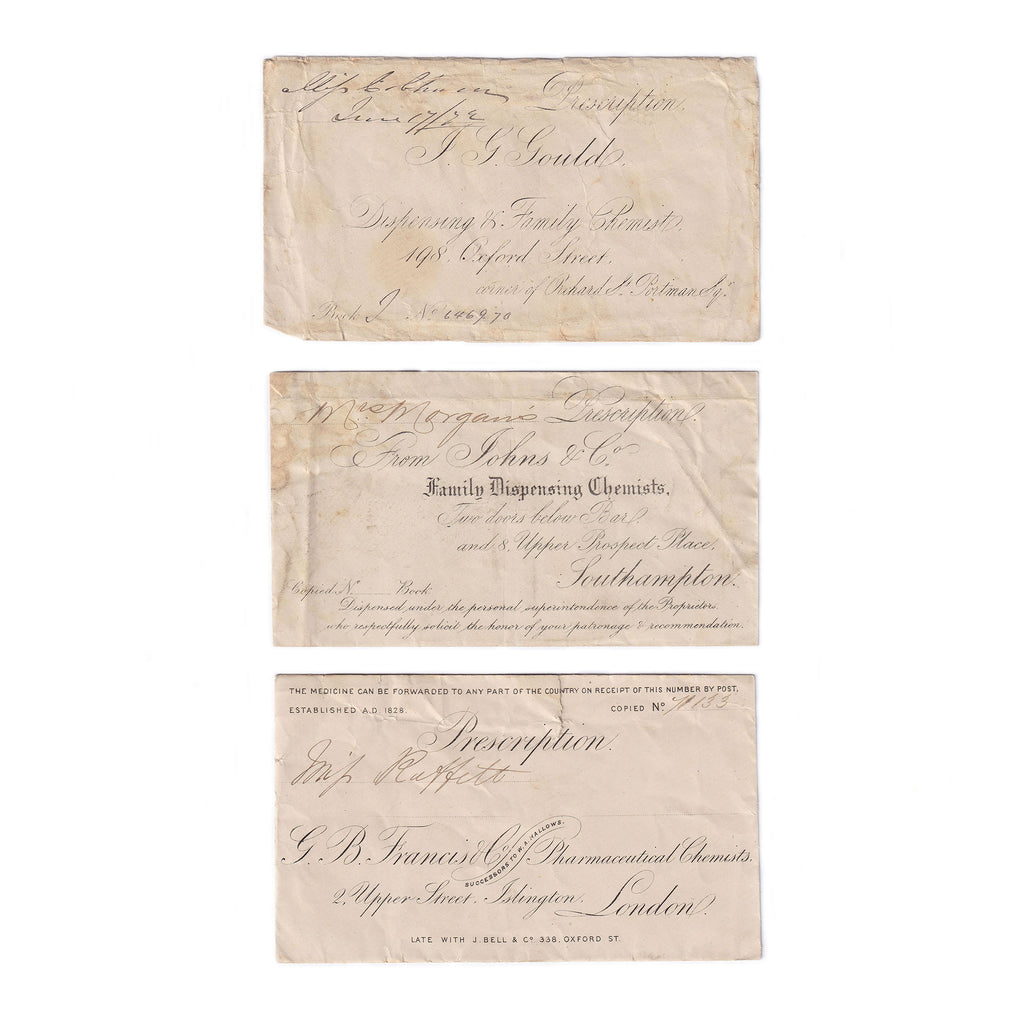 Miss
Prescription.
June 17/72
J. G. Gould.
Dispensing & Family Chemist.
198. Oxford Street.
corner of Orchard St. Portman Sqr.
Book J No 6469.70
Mrs Morgan's Prescription.
From Johns & Co.
Family Dispensing Chemists,
Two doors below Bar.
and 8, Upper Prospect Place,
Southampton.
Copied No Book
Dispensed under the personal superintendence of the Proprietors,
who respectfully solicit the honor of your patronage & recommendation.
THE MEDICINE CAN BE FORWARDED TO ANY PART OF THE COUNTRY ON RECEIPT OF THIS NUMBER BY POST,
ESTABLISHED A.D. 1828. COPIED No
Prescription.
Miss Raffett
G. B. Francis & Co. Pharmaceutical Chemists.
SUCCESSORS TO W. A. HALLOWS.
2, Upper Street. Islington. London.
LATE WITH J. BELL & Co 338, OXFORD ST.